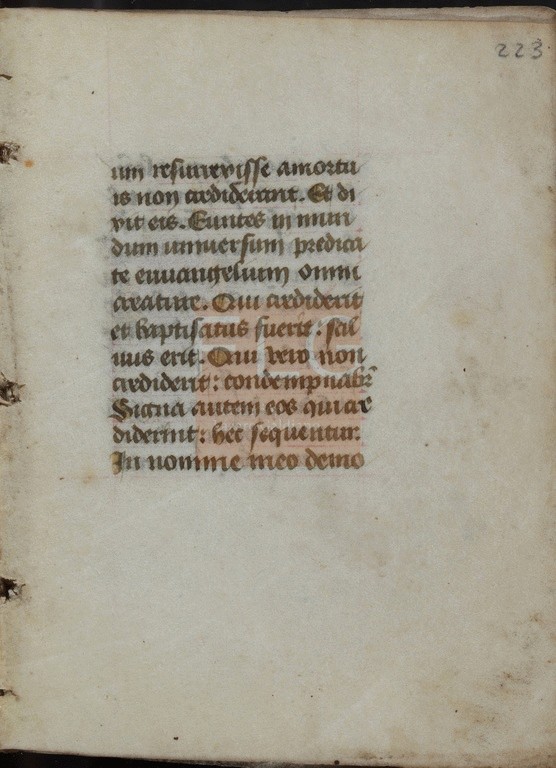 223
um resurrexisse amortu
is non crediderant. Et di
xit eis. Euntes in mun
dum universum predica
te euuangelium omni
creature. Qui crediderit
et baptisatus fuerit: sal
uus erit. Qui vero non
crediderit: condempnabr̄
Signa autem eos qui cre
diderint: hec sequentur.
In nomine meo demo